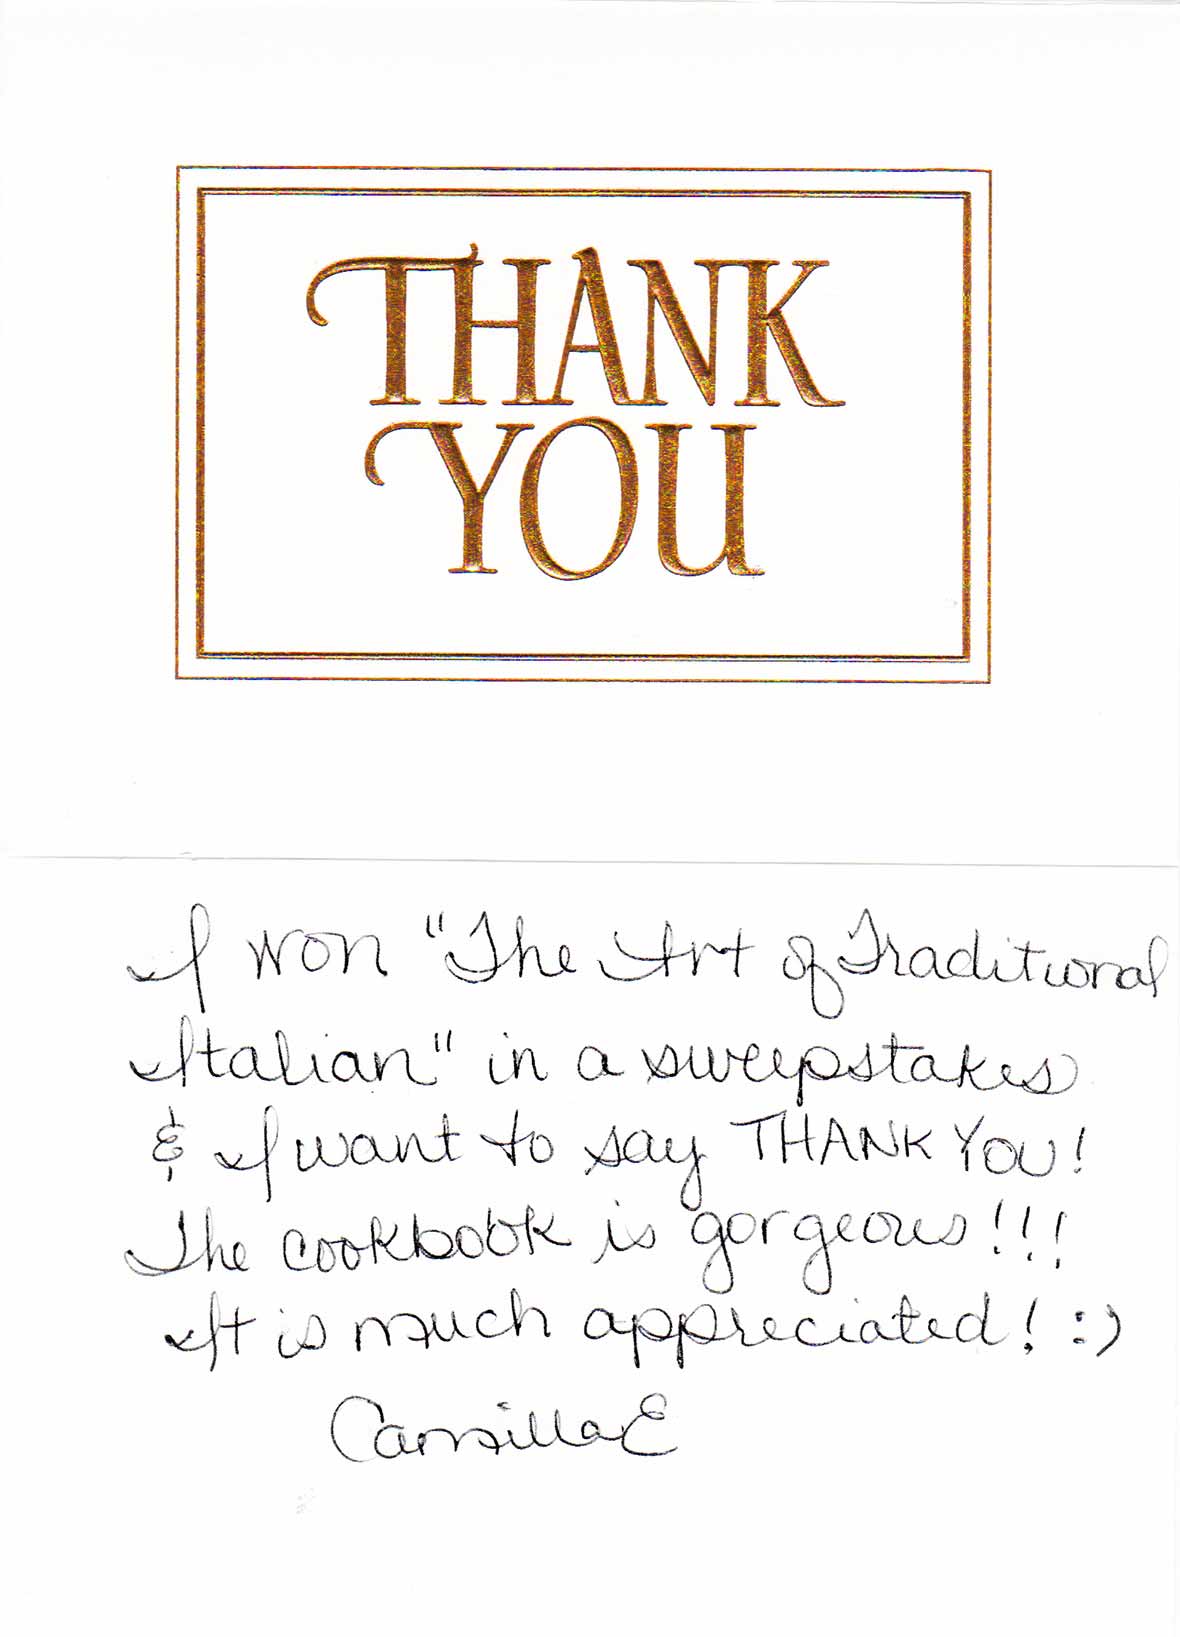 THANK
YOU
I won "The Art of Traditional
Italian" in a sweepstakes
& I want to say THANK YOU!
The cookbook is gorgeous!!!
It is much appreciated! :)
Camilla E